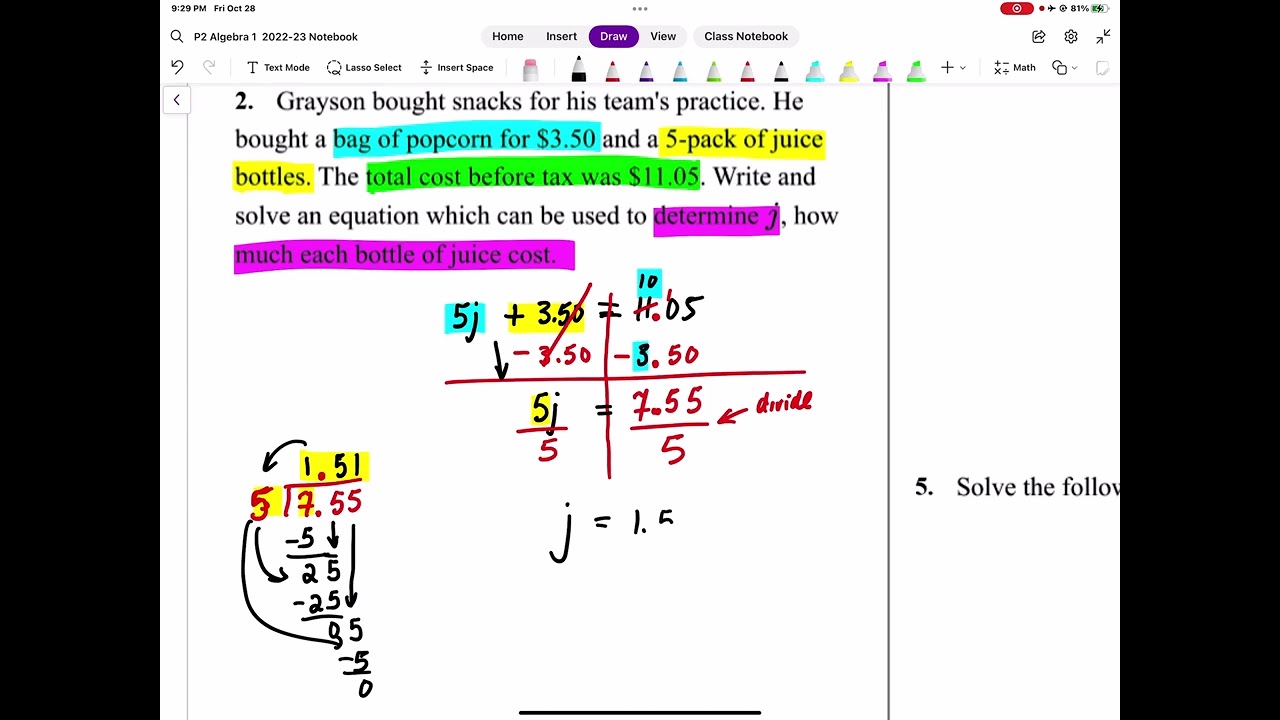 9:29 PM Fri Oct 28
81%
P2 Algebra 1 2022-23 Notebook
Home Insert Draw View Class Notebook
Text Mode Lasso Select Insert Space Math
2. Grayson bought snacks for his team's practice. He
bought a bag of popcorn for $3.50 and a 5-pack of juice
bottles. The total cost before tax was $11.05. Write and
solve an equation which can be used to determine j, how
much each bottle of juice cost.
10
5j + 3.50 = 11.05
- 3.50 - 3.50
5j = 7.55
divide
5 5
j = 1.5
1.51
5 7.55
-5
25
-25
05
-5
0
5. Solve the follow